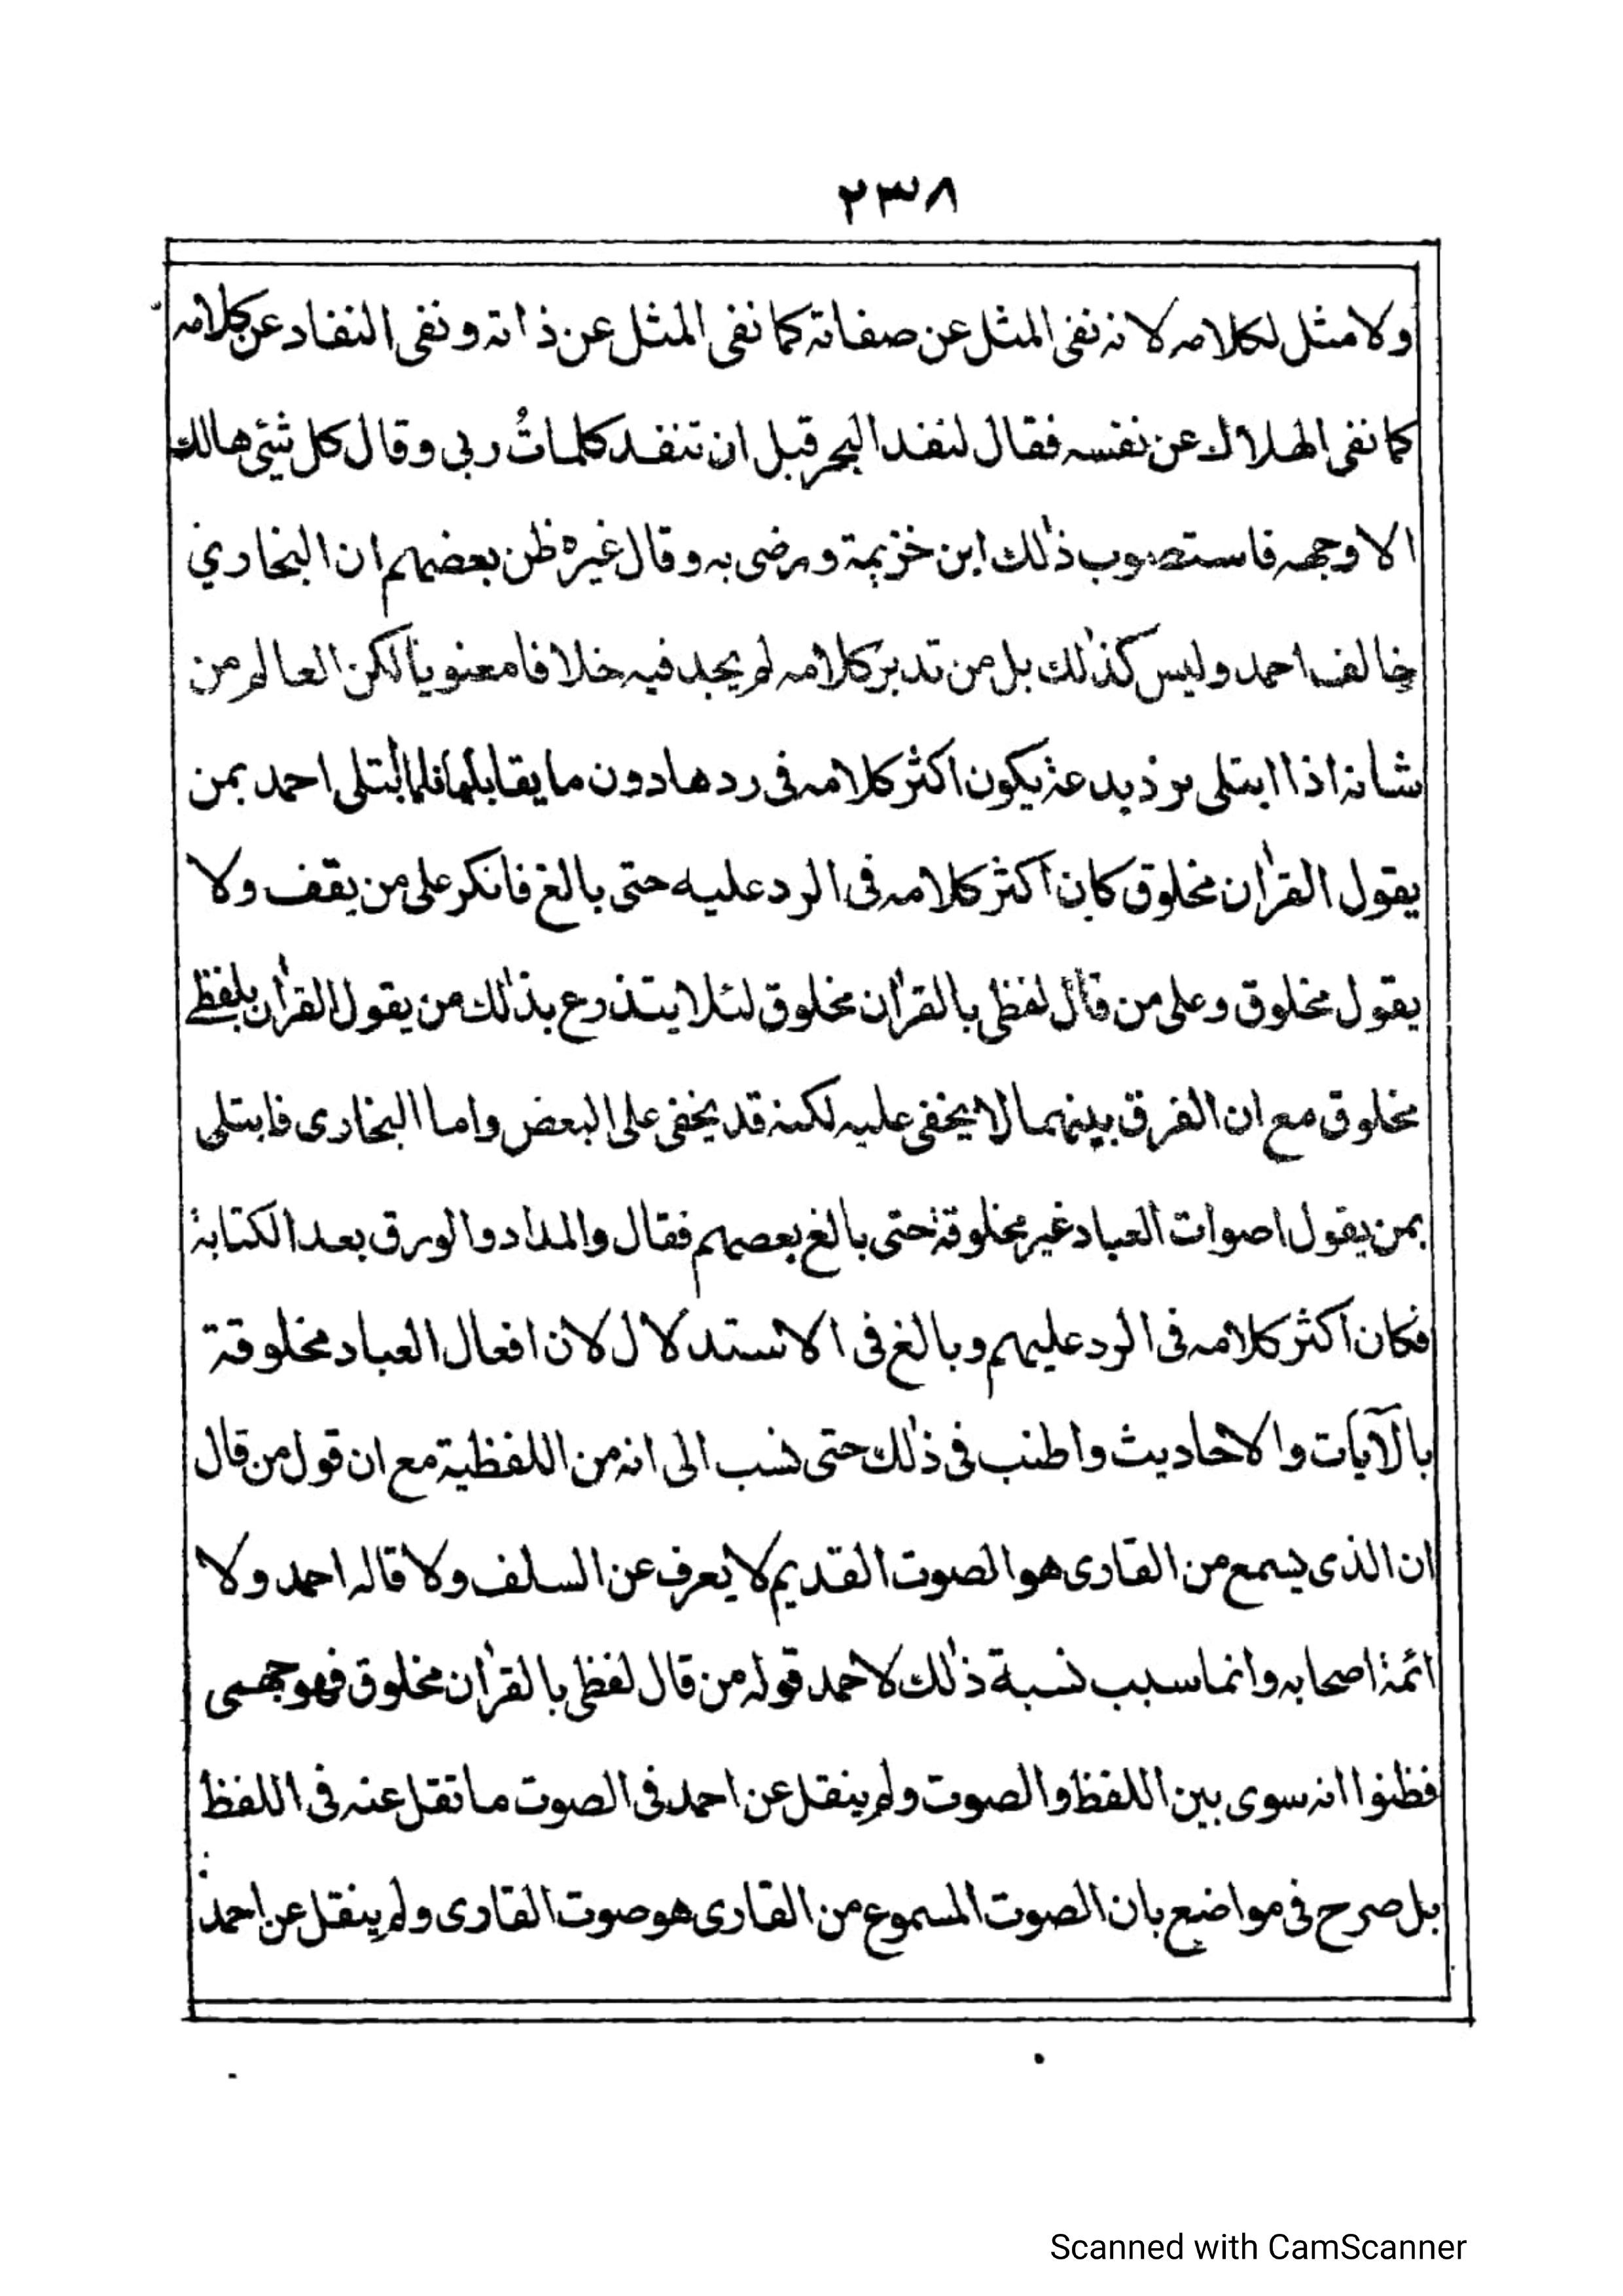 ٢٣٨
ولا مثل لكلامه لانه نفى المثل عن صفاته كما نفى المثل عن ذاته ونفى النفاد عن كلامه
كما نفى الهلاك عن نفسه فقال لنفد البحر قبل ان تنفد كلماتُ ربى وقال كل شئى هالك
الا وجهه فاستصوب ذٰلك ابن خزيمة ورضى به وقال غيره ظن بعضهم ان البخاري
خالف احمد وليس كذٰلك بل من تدبر كلامه لم يجد فيه خلافا معنويا لكن العالم من
شانه اذا ابتلى برد بدعة يكون اكثر كلامه فى ردها دون ما يقابلها فلما ابتلى احمد بمن
يقول القرٰان مخلوق كان اكثر كلامه فى الرد عليه حتى بالغ فانكر على من يقف ولا
يقول مخلوق وعلى من قال لفظى بالقرٰان مخلوق لئلا يتذرع بذٰلك من يقول القرٰان بلفظے
مخلوق مع ان الفرق بينهما لا يخفى عليه لكنه قد يخفى على البعض واما البخارى فابتلى
بمن يقول اصوات العباد غير مخلوقة حتى بالغ بعصهم فقال والمداد والورق بعد الكتابة
فكان اكثر كلامه فى الرد عليهم وبالغ فى الاستدلال لان افعال العباد مخلوقة
بالآيات والاحاديث واطنب فى ذٰلك حتى نسب الى انه من اللفظية مع ان قول من قال
ان الذى يسمع من القارى هو الصوت القديم لا يعرف عن السلف ولا قاله احمد ولا
ائمة اصحابه وانما سبب نسبة ذٰلك لاحمد قوله من قال لفظى بالقرٰان مخلوق فهو جهمى
فظنوا انه سوى بين اللفظ والصوت ولم ينقل عن احمد فى الصوت ما نقل عنه فى اللفظ
بل صرح فى مواضع بان الصوت المسموع من القارى هو صوت القارى ولم ينقل عن احمد
Scanned with CamScanner